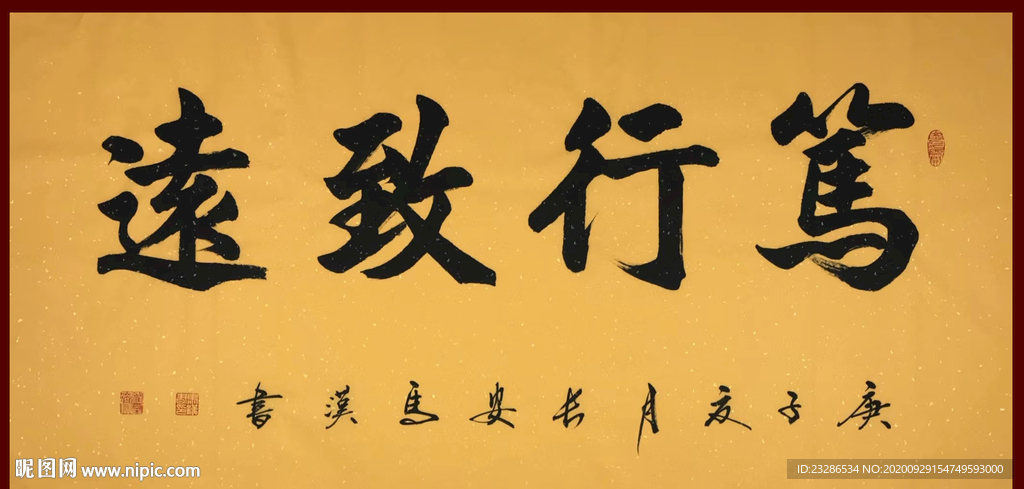 篤行致遠
庚子夏月長安馬漢書
昵图网 www.nipic.com
ID:23286534 NO:20200929154749593000